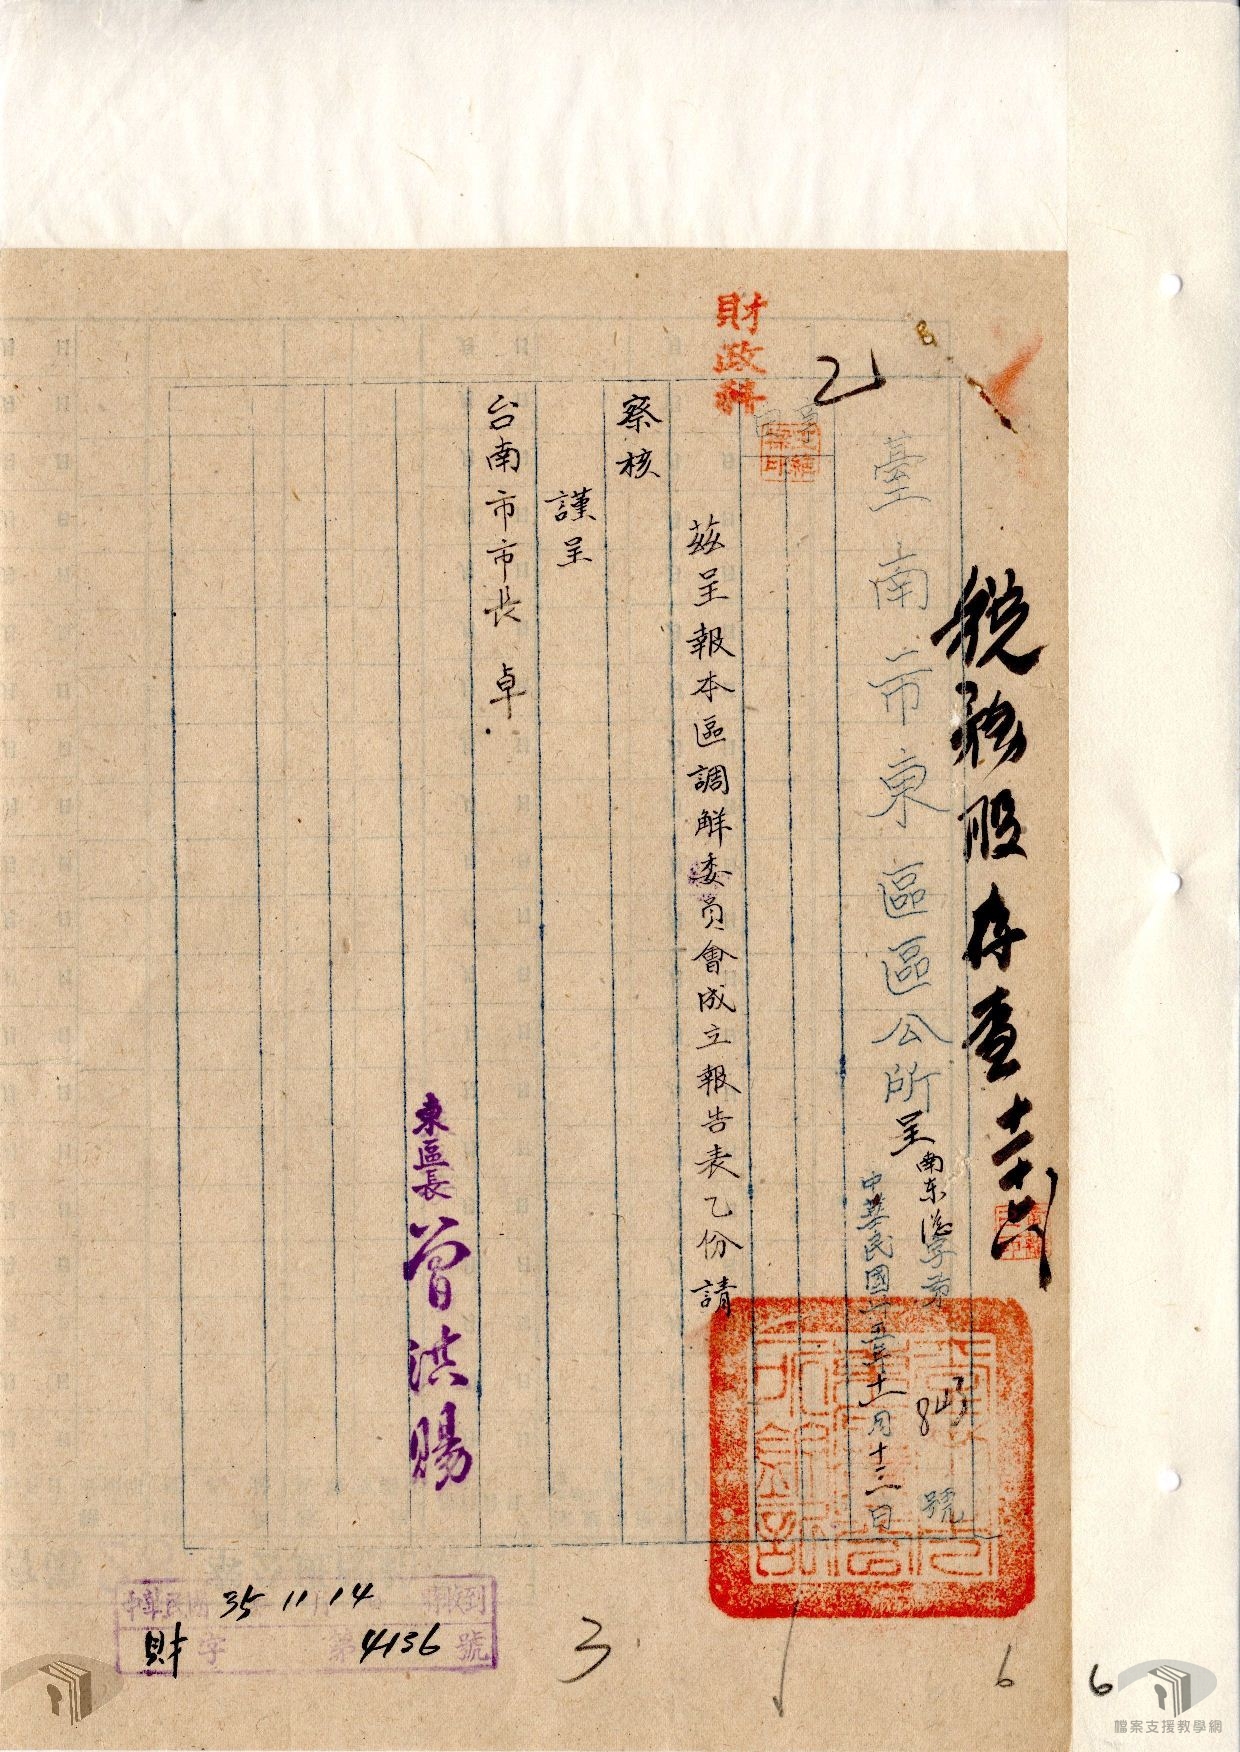 稅務股存查 十一、十六
臺南市東區區公所呈
南东
字第
號
中華民國卅五年十一月十三日
財政科
茲呈報本區調解委員會成立報告表乙份請
察核
謹呈
台南市市長 卓
東區長 曾洪賜
中華民國 35 11 14 到
財字第4136號
3
6
6
檔案支援教學網